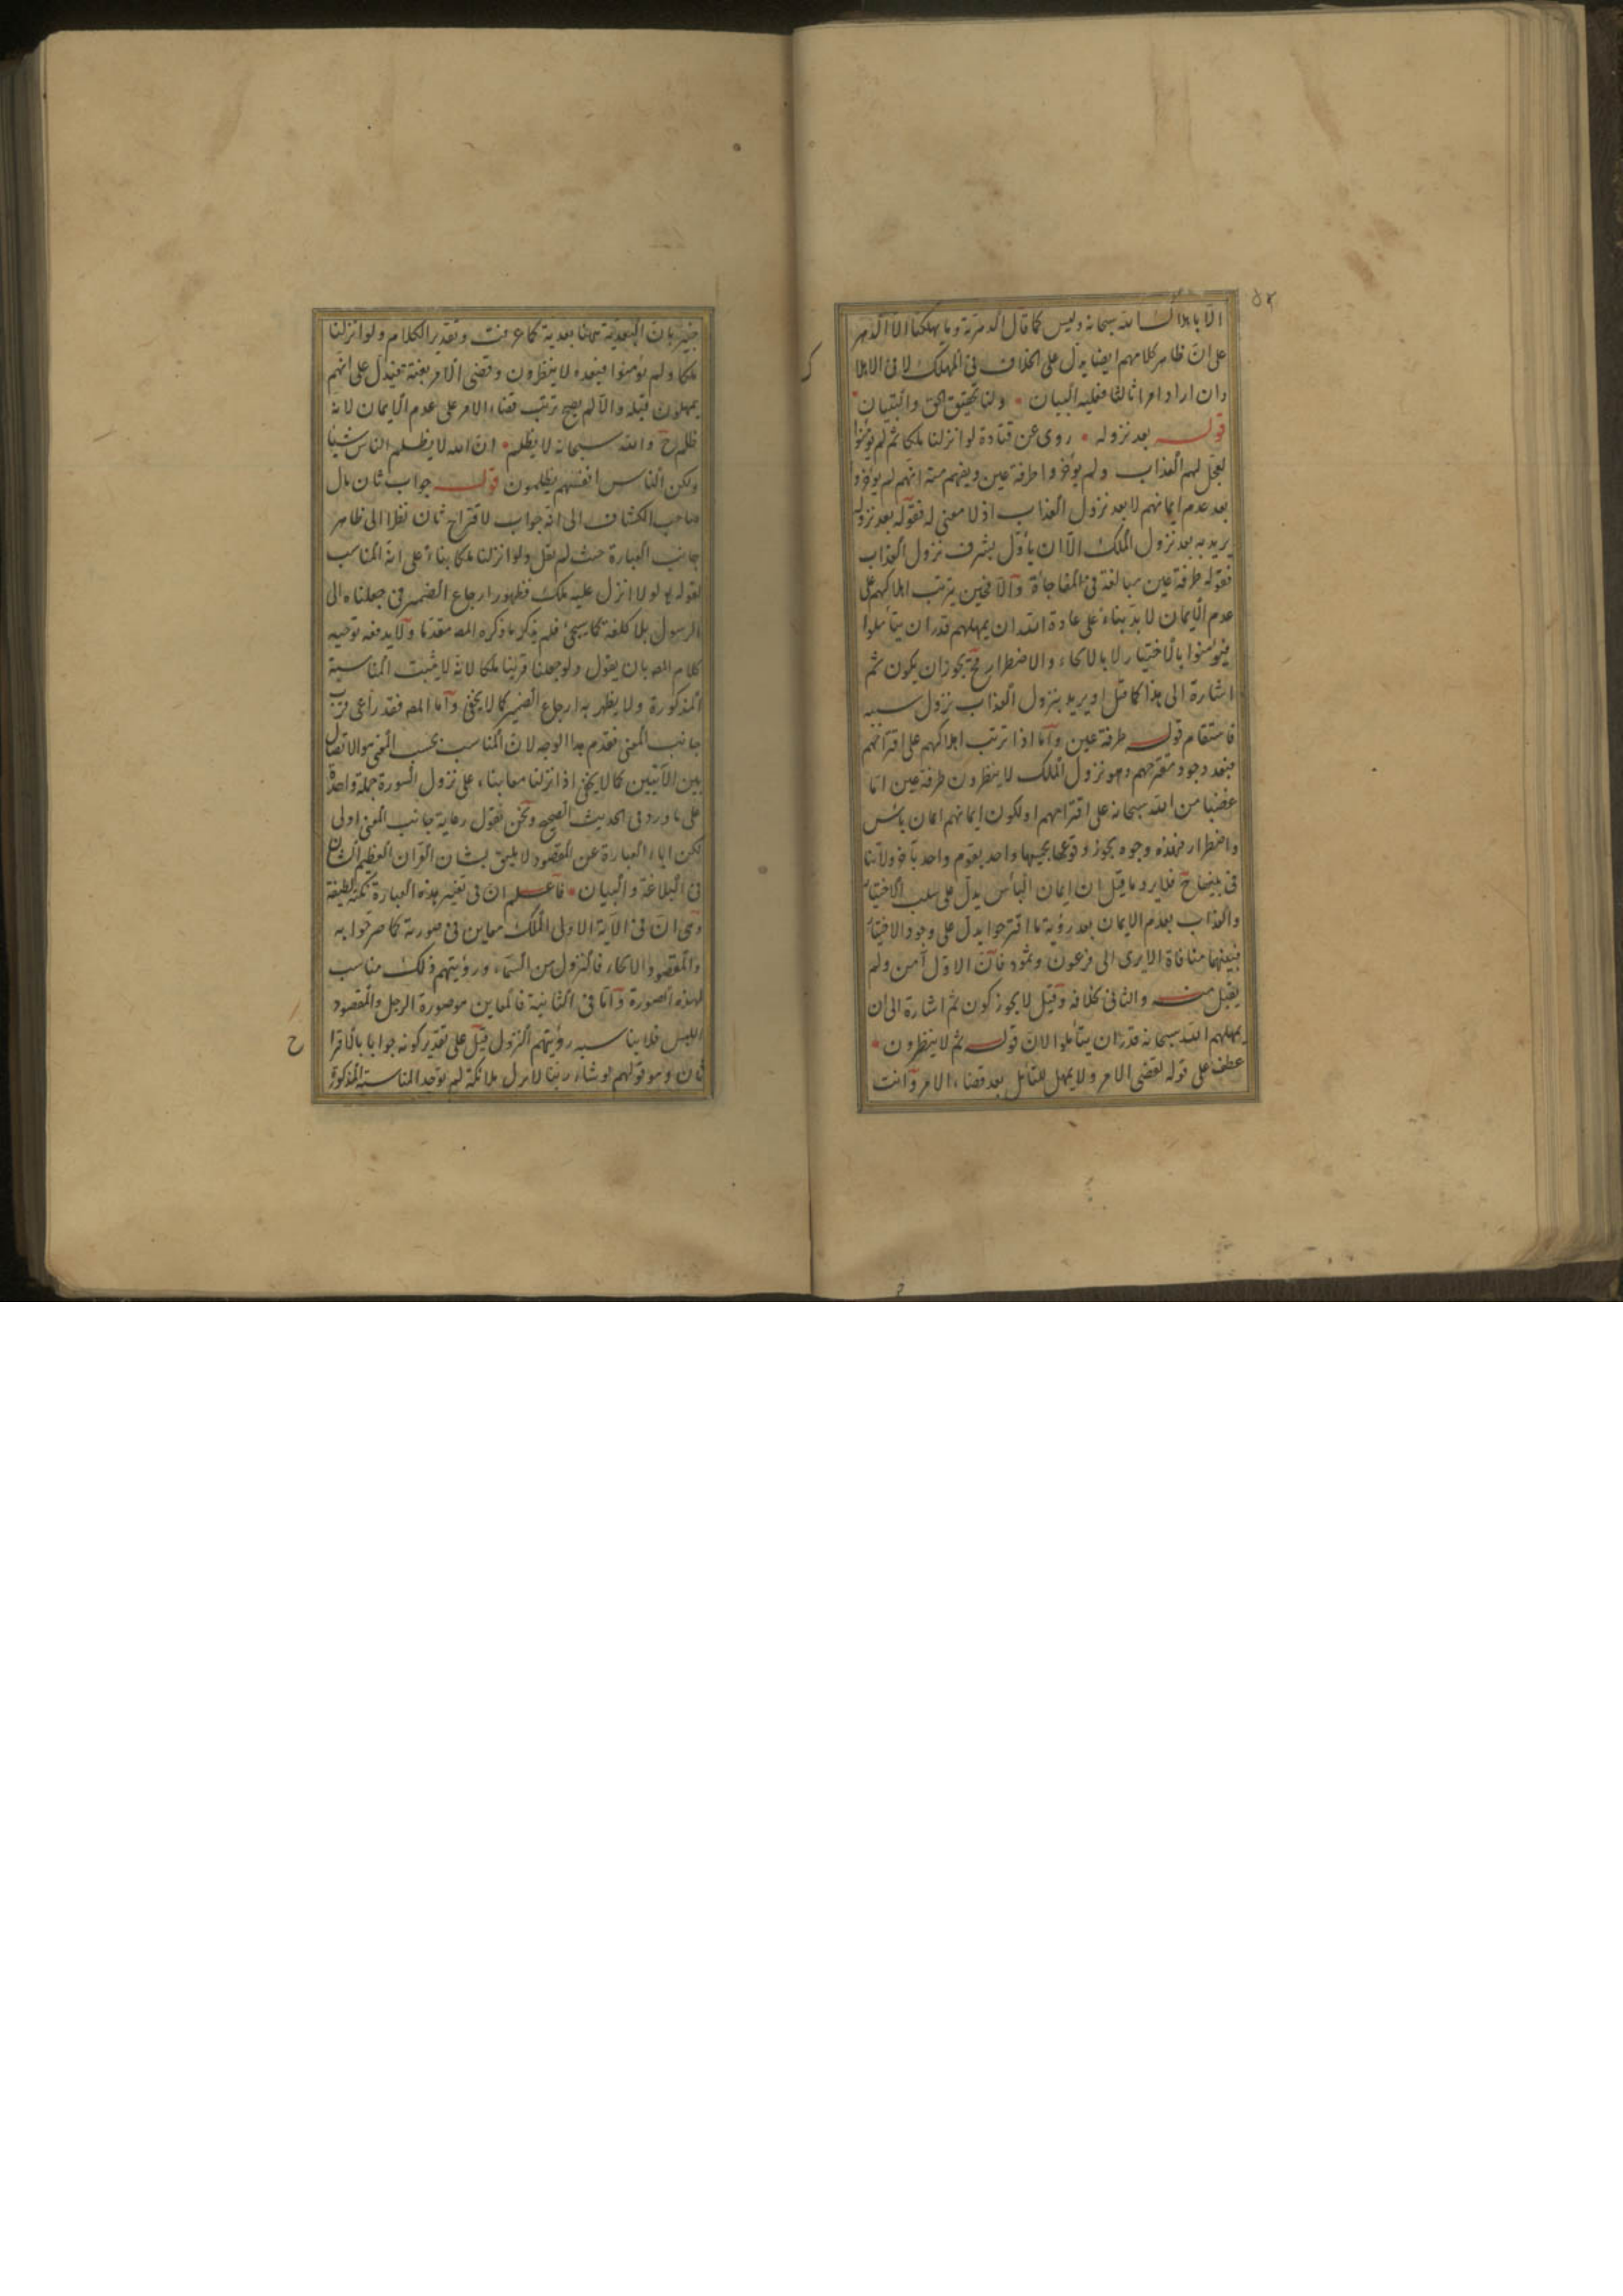 الا باهلاك الله سبحانه وليس كما قال الدهرية وما يهلكنا الا الدهر
على ان ظاهر كلامهم ايضا يدل على الخلاف في المهلك لا في الاهلا
وان اراد امرا ثالثا فعليه البيان ولنا تحقيق الحق والتبيان
قوله بعد نزوله روى عن قتادة لو انزلنا ملكا ثم لم يؤمنوا
لعجل لهم العذاب ولم يؤخروا طرفة عين ويفهم منه انهم لم يؤخروا
بعد عدم ايمانهم لا بعد نزول العذاب اذ لا معنى له فقوله بعد نزوله
يريد به بعد نزول الملك الا ان يأول بشرف نزول العذاب
فقوله طرفة عين مبالغة في المفاجأة والا فحين يترتب اهلاكهم على
عدم الايمان لا بد بناء على عادة الله ان يمهلهم قدر ان يتأملوا
فيؤمنوا بالاختيار لا بالالجاء والاضطرار فح يجوز ان يكون ثم
اشارة الى هذا كما قيل او يريد بنزول العذاب نزول سببه
فاستقام قوله طرفة عين واما اذا ترتب اهلاكهم على اقتراحهم
فبعد وجود مقترحهم وهو نزول الملك لا ينظرون طرفة عين اما
غضبا من الله سبحانه على اقتراحهم او لكون ايمانهم ايمان يأس
واضطرار فهذه وجوه يجوز وقوعها بحيثها واحد بقوم واحد بآخر ولا تنا
في بينها ح فلا يرد ما قيل ان ايمان البأس يدل على سلب الاختيار
والعذاب بعدم الايمان بعد رؤية ما اقترحوا يدل على وجود الاختيار
فبينهما منافاة الا يرى الى فرعون وثمود فان الاول آمن ولم
يقبل منه والثاني بخلافه وقيل لا يجوز كون ثم اشارة الى ان
يمهلهم الله سبحانه قدر ان يتأملوا لان قوله ثم لا ينظرون
عطف على قوله لقضى الامر ولا يمهل للتأمل بعد قضاء الامر وانت
خبير بان البعدية هاهنا بعدية كما عرفت وتقدير الكلام ولو انزلنا
ملكا ولم يؤمنوا فبعده لا ينظرون وقضى الامر بغتة فيدل على انهم
يمهلون قبله والا لم يصح ترتب قضاء الامر على عدم الايمان لانه
ظلم ح والله سبحانه لا يظلم ان الله لا يظلم الناس شيئا
ولكن الناس انفسهم يظلمون قوله جواب ثان مال
صاحب الكشاف الى انه جواب لاقتراح ثان نظرا الى ظاهر
جانب العبارة حيث لم يقل ولو انزلنا ملكا بناء على انه المناسب
لقوله لولا انزل عليه ملك فظهور ارجاع الضمير في جعلناه الى
الرسول بلا كلفة كما سيجئ فلم يذكر ما ذكره المص مقدما ولا يدفعه توجيه
كلام المص بان يقول ولو جعلنا قرينا ملكا لانه لا يثبت المناسبة
المذكورة ولا يظهر به ارجاع الضمير كما لا يخفى واما المص فقد راعى قرب
جانب المعنى فقدم هذا الوجه لان المناسب بحسب المعنى هو الاتصال
بين الآيتين كما لا يخفى اذ انزلنا معا بناء على نزول السورة جملة واحدة
على ما ورد في الحديث الصحيح ونحن نقول رعاية جانب المعنى اولى
لكن اباء العبارة عن المقصود لا يليق بشان القران العظيم الشان
في البلاغة والبيان فاعلم ان في تغيير هذه العبارة نكتة لطيفة
وهي ان في الآية الاولى الملك معاين في صورته كما صرحوا به
والمقصود الالجاء فالنزول من السماء ورؤيتهم ذلك مناسب
لهذه الصورة واما في الثانية فالمعاين هو صورة الرجل والمقصود
اللبس فلا يناسبه رؤيتهم النزول قيل على تقدير كونه جوابا بالاقترا
ثان وهو قولهم لو شاء ربنا لانزل ملائكة لم يوجد المناسبة المذكورة